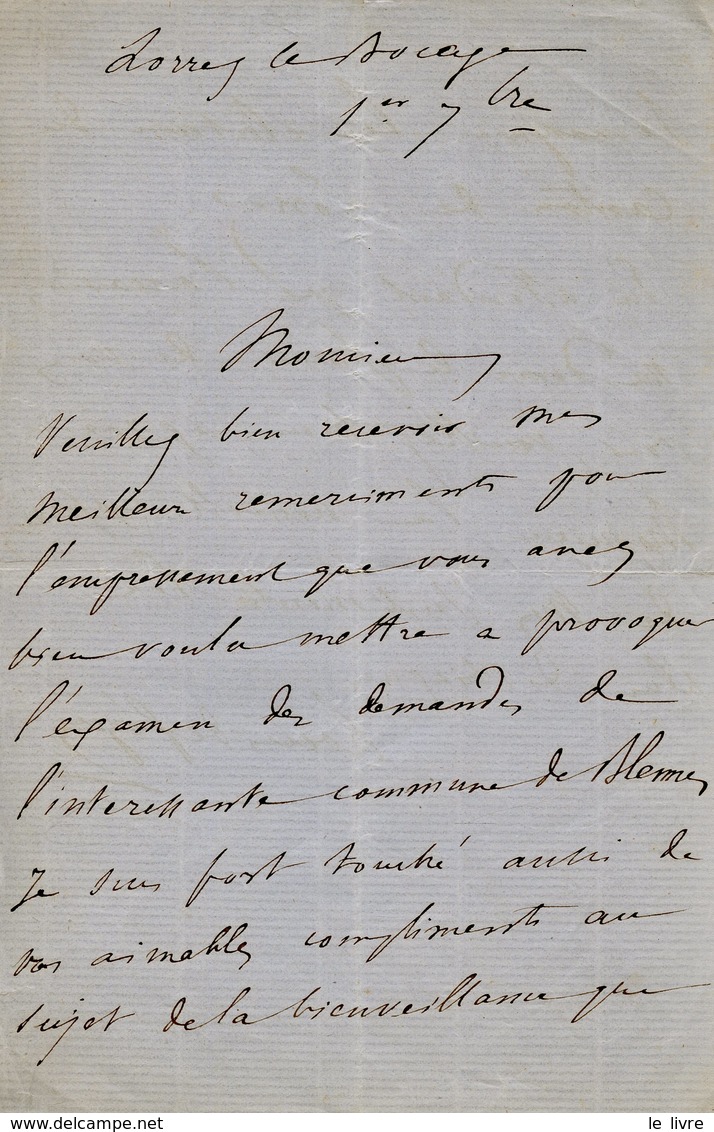 Lorrez le Bocage
1er 7bre
Monsieur
Veuillez bien recevoir mes
meilleurs remerciments pour
l'empressement que vous avez
bien voulu mettre a provoquer
l'examen des demandes de
l'interessante commune de Blennes
Je suis fort touché aussi de
vos aimables compliments au
sujet de la bienveillance que
le livre